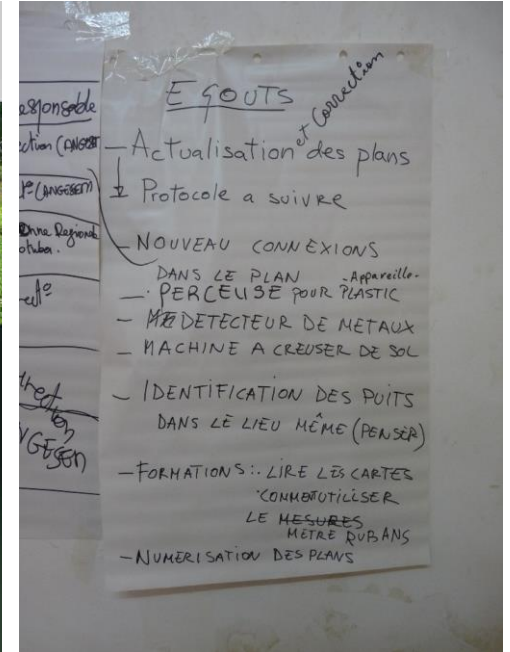 esponsable
ction (ANGESEM
(ANGESEM)
nne Regionale
otuba.
NGESEM
EGOUTS
et Correction
- Actualisation des plans
Protocole a suivre
- NOUVEAU CONNEXIONS
DANS LE PLAN - Appareille.
- PERCEUSE POUR PLASTIC
- DETECTEUR DE METAUX
- MACHINE A CREUSER DE SOL
- IDENTIFICATION DES PUITS
DANS LE LIEU MÊME (PENSER)
- FORMATIONS: . LIRE LES CARTES
COMMETUTILISER
LE MESURES
METRE RUBANS
- NUMERISATION DES PLANS